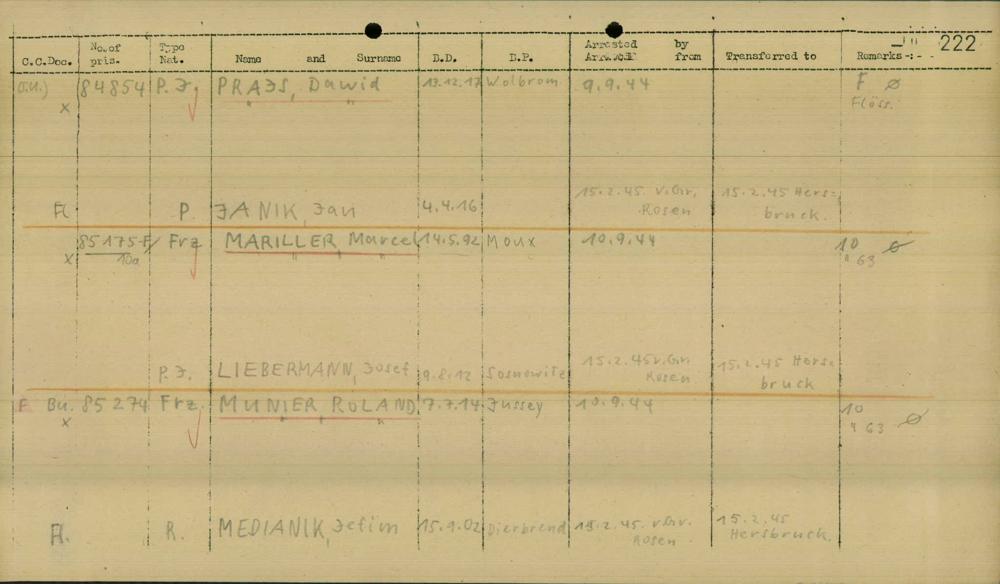 222
C.C.Doc. No. of pris. Type Nat. Name and Surname D.D. B.P. Arrested Arrived by from Transferred to Remarks
84854 P. J. PRAJS, Dawid 13.12.17 Wolbrom 9.9.44 F Ø
x Flöss.
Fl P. JANIK, Jan 4.4.16 15.2.45. v. Gr. Rosen 15.2.45 Hers=bruck.
85175-F/ Frz MARILLER Marcel 14.5.92 Moux 10.9.44 10
x 10a " 63 Ø
P. J. LIEBERMANN, Josef 9.8.12 Sosnowitz 15.2.45 v. Gr. Rosen 15.2.45 Hers=bruck
F Bu. 85274 Frz. MUNIER, ROLAND 7.7.14 Jussey 10.9.44 10
x " 63 Ø
Fl. R. MEDIANIK, Jefim 15.9.02 15.2.45. v. Gr. Rosen 15.2.45 Hersbruck.